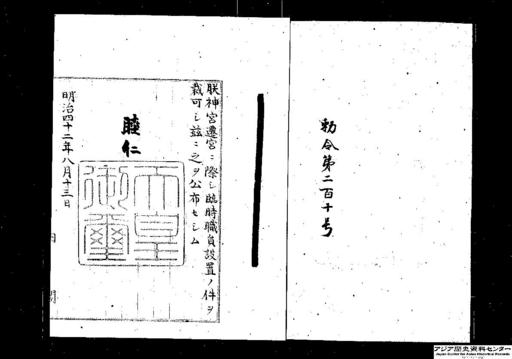 勅令第二百十号
朕神宮遷宮ニ際シ臨時職員設置ノ件ヲ
裁可シ茲ニ之ヲ公布セシム
睦仁
天皇御璽
明治四十二年八月十三日
アジア歴史資料センター
Japan Center for Asian Historical Records